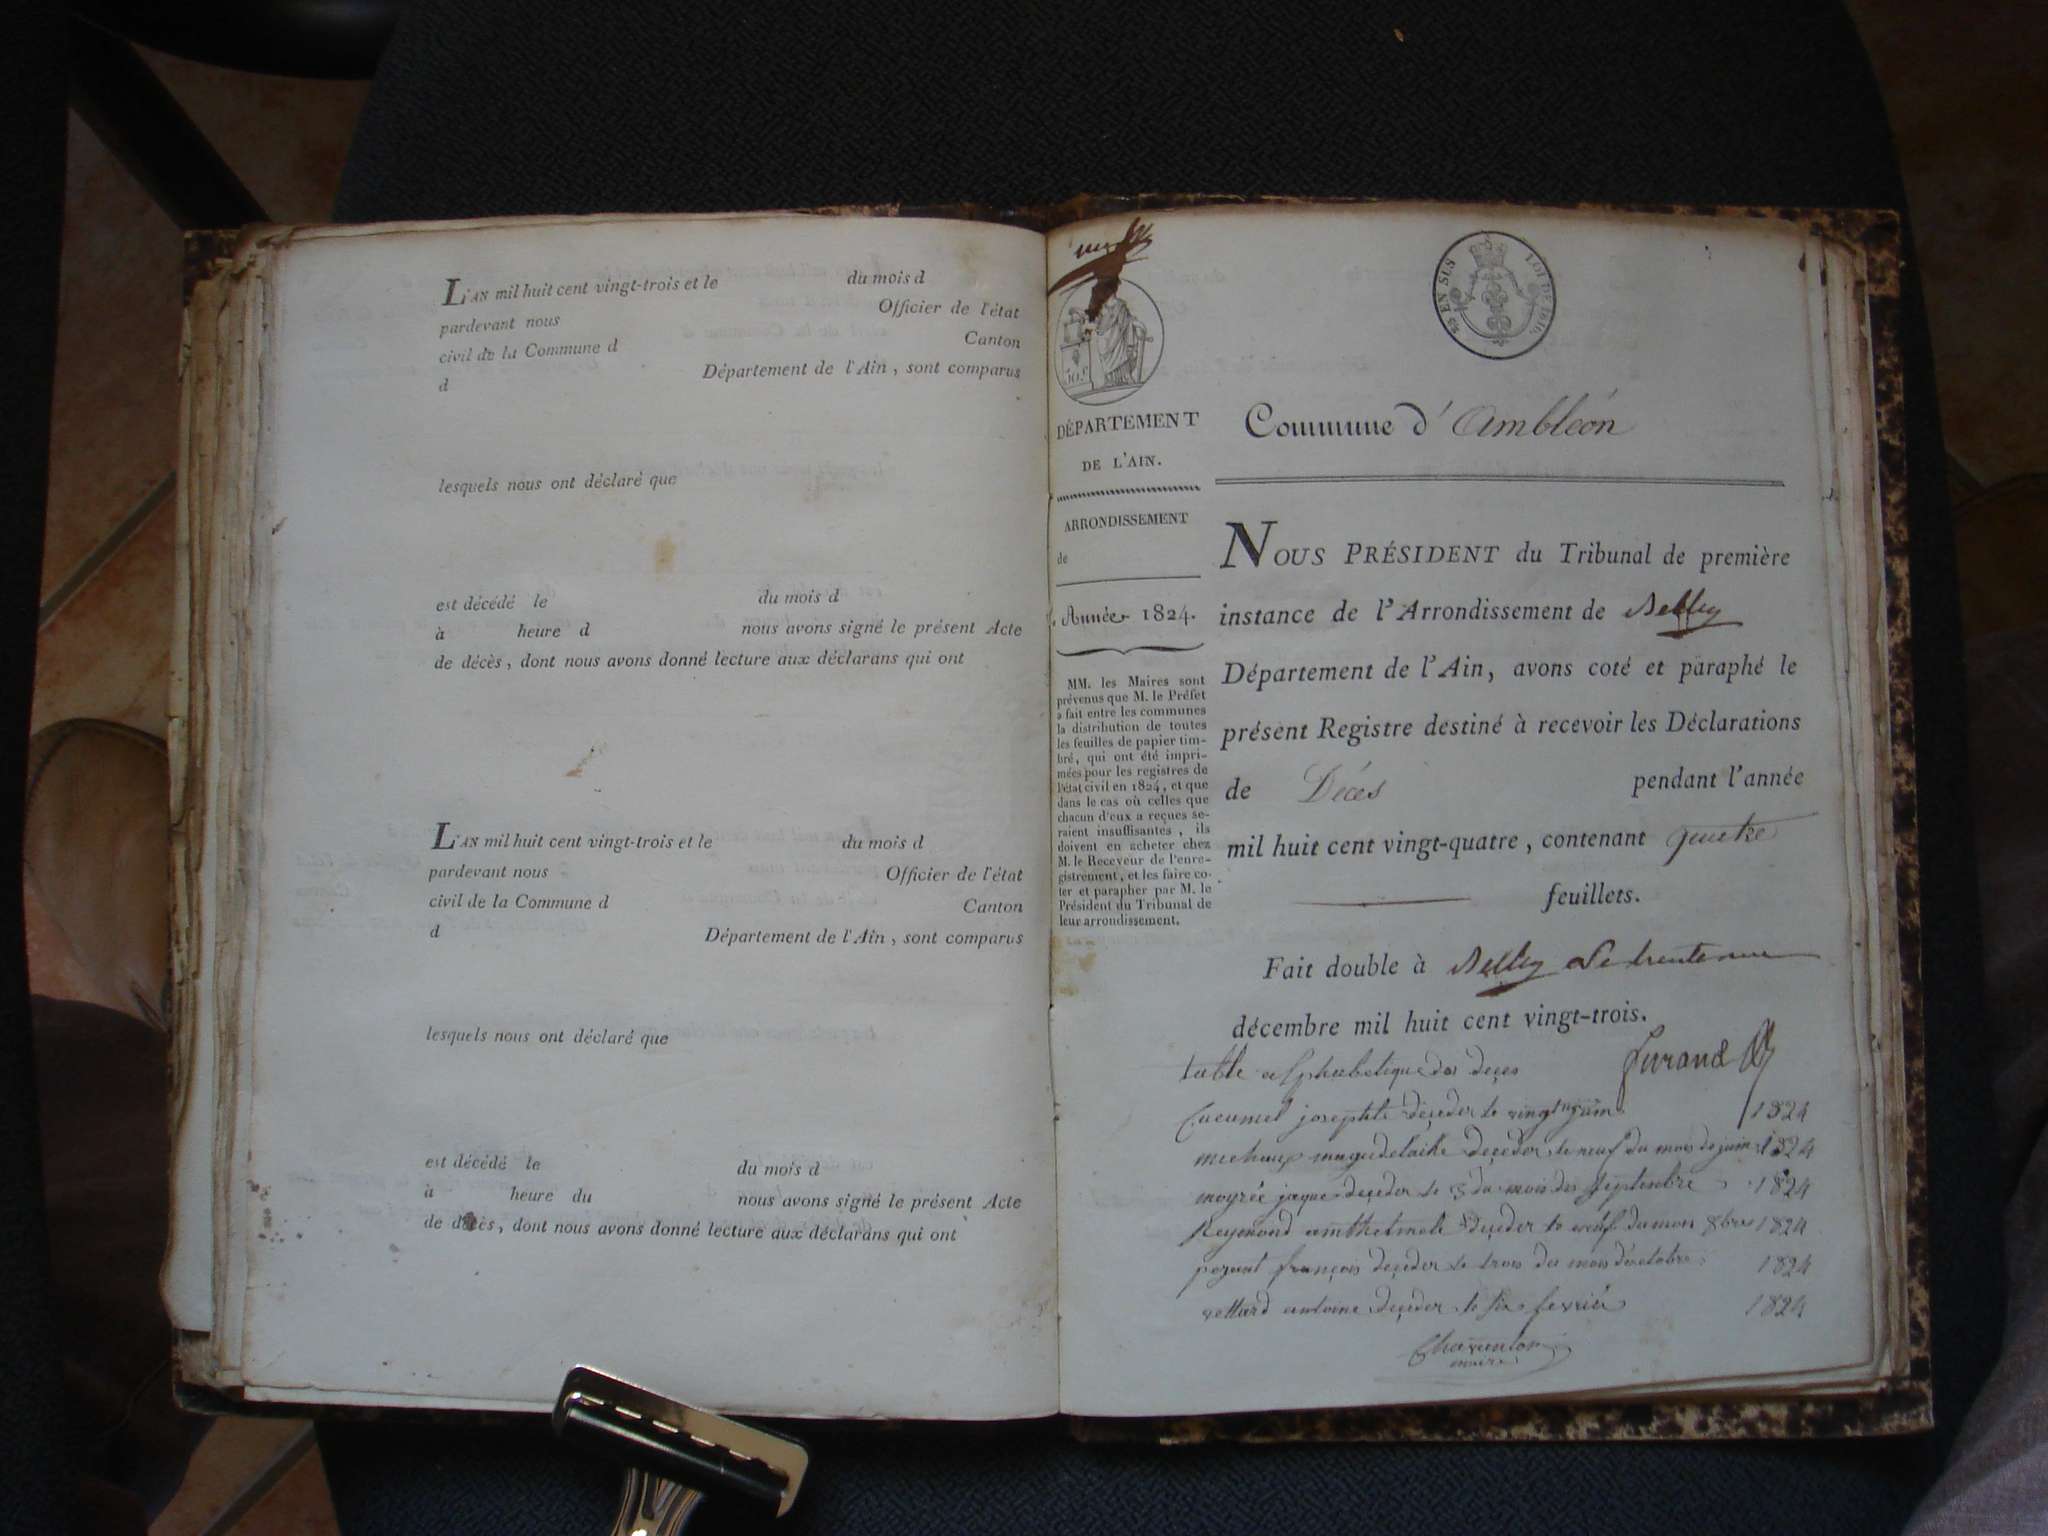 L'AN mil huit cent vingt-trois et le du mois d
pardevant nous Officier de l'état
civil de la Commune d Canton
d Département de l'Ain, sont comparus
lesquels nous ont déclaré que
est décédé le du mois d
à heure d nous avons signé le présent Acte
de décès, dont nous avons donné lecture aux déclarans qui ont
L'AN mil huit cent vingt-trois et le du mois d
pardevant nous Officier de l'état
civil de la Commune d Canton
d Département de l'Ain, sont comparus
lesquels nous ont déclaré que
est décédé le du mois d
à heure du nous avons signé le présent Acte
de décès, dont nous avons donné lecture aux déclarans qui ont
EN SUS LOI DE 1816.
DÉPARTEMENT
DE L'AIN.
ARRONDISSEMENT
de
Année 1824.
MM. les Maires sont
prévenus que M. le Préfet
a fait entre les communes
la distribution de toutes
les feuilles de papier tim-
bré, qui ont été impri-
mées pour les registres de
l'état civil en 1824, et que
dans le cas où celles que
chacun d'eux a reçues se-
raient insuffisantes, ils
doivent en acheter chez
M. le Receveur de l'enre-
gistrement, et les faire co-
ter et parapher par M. le
Président du Tribunal de
leur arrondissement.
Commune d'Ambléon
NOUS PRÉSIDENT du Tribunal de première
instance de l'Arrondissement de Belley
Département de l'Ain, avons coté et paraphé le
présent Registre destiné à recevoir les Déclarations
de Décès pendant l'année
mil huit cent vingt-quatre, contenant quatre
feuillets.
Fait double à Belley Le trente un
décembre mil huit cent vingt-trois.
table alphabetique des deces
Cucumel josephte déçeder le vingt juin 1824
michaux magdelaine déçeder le neuf du mois de juin 1824
moyrée jaque déçeder le 3 du mois des septembre 1824
Reymond deçeder le neuf du mois 8bre 1824
françois deçeder le trois du mois d'octobre 1824
antoine deçeder le six fevrier 1824
maire